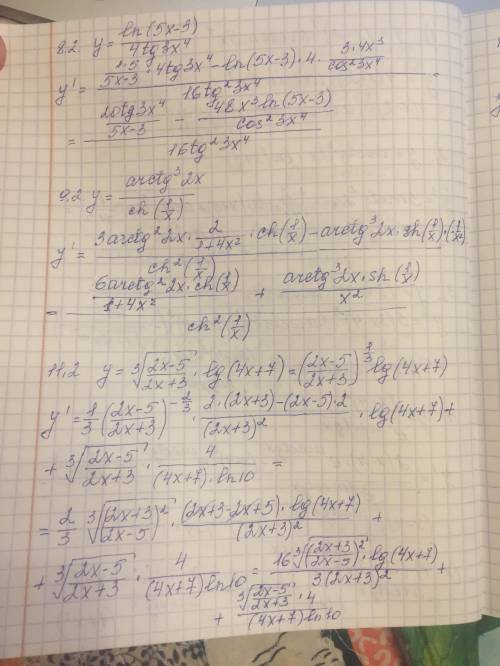 8.2. y = ln(5x-3) / 4tg3x⁴
y' = (1·5/(5x-3) · 4tg3x⁴ - ln(5x-3)·4· 3·4x³/cos²3x⁴) / 16tg²3x⁴ =
= (20tg3x⁴/(5x-3) - 48x³ln(5x-3)/cos²3x⁴) / 16tg²3x⁴
9.2 y = arctg³2x / ch(1/x)
y' = (3arctg²2x · 2/(1+4x²) · ch(1/x) - arctg³2x · sh(1/x)·(1/x²)) / ch²(1/x)
= (6arctg²2x·ch(1/x)/(1+4x²) + arctg³2x·sh(1/x)/x²) / ch²(1/x)
11.2 y = ³√((2x-5)/(2x+3)) · lg(4x+7) = ((2x-5)/(2x+3))^(1/3) lg(4x+7)
y' = 1/3 ((2x-5)/(2x+3))^(-2/3) · (2·(2x+3)-(2x-5)·2)/(2x+3)² · lg(4x+7) +
+ ³√((2x-5)/(2x+3)) · 4/((4x+7)·ln10) =
= 2/3 ³√((2x+3)²/(2x-5)) · (2x+3-2x+5)·lg(4x+7)/(2x+3)² +
+ ³√((2x-5)/(2x+3)) · 4/((4x+7)ln10) = 16 ³√(((2x+3)/(2x-5))²)·lg(4x+7) / 3(2x+3)² +
+ ³√((2x-5)/(2x+3))·4 / (4x+7)ln10